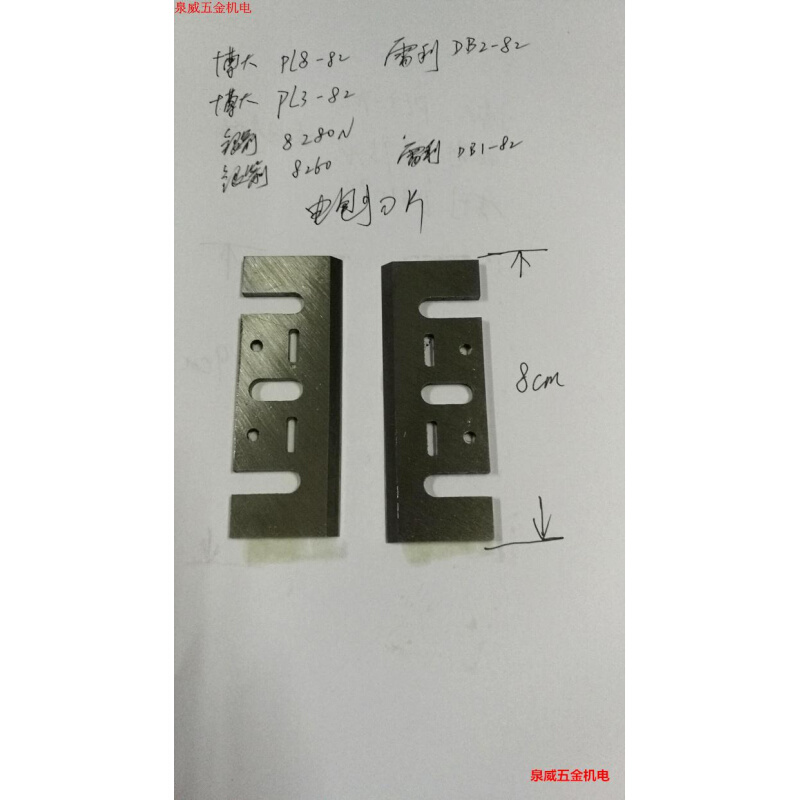 泉威五金机电
博大 PL8-82 雷利 DB2-82
博大 PL3-82
8280N 雷利 DB1-82
8260
电刨刀片
8cm
泉威五金机电